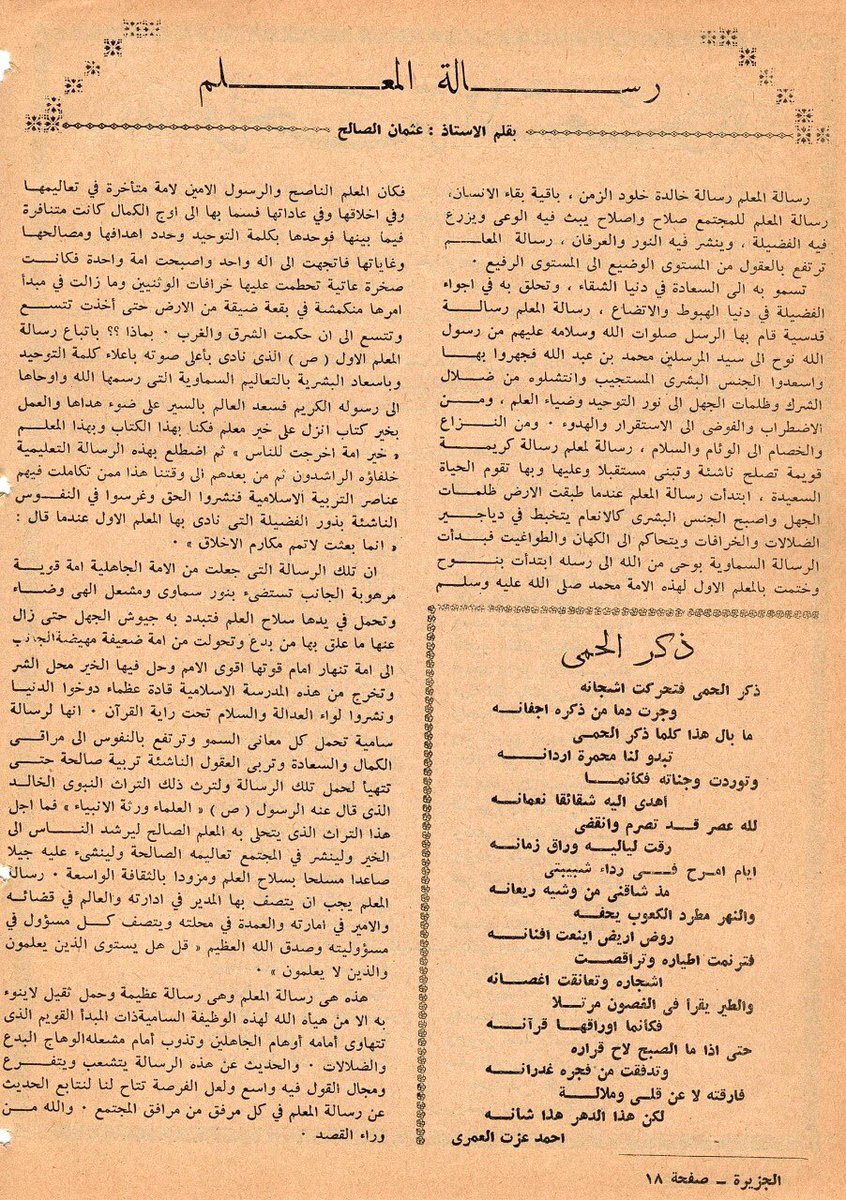 رسالة المعلم
بقلم الاستاذ : عثمان الصالح
رسالة المعلم رسالة خالدة خلود الزمن ، باقية بقاء الانسان،
رسالة المعلم للمجتمع صلاح واصلاح يبث فيه الوعى ويزرع
فيه الفضيلة ، وينشر فيه النور والعرفان ، رسالة المعلم
ترتفع بالعقول من المستوى الوضيع الى المستوى الرفيع ٠
تسمو به الى السعادة في دنيا الشقاء ، وتحلق به في اجواء
الفضيلة في دنيا الهبوط والاتضاع ، رسالة المعلم رسالة
قدسية قام بها الرسل صلوات الله وسلامه عليهم من رسول
الله نوح الى سيد المرسلين محمد بن عبد الله فجهروا بها
واسعدوا الجنس البشرى المستجيب وانتشلوه من ضلال
الشرك وظلمات الجهل الى نور التوحيد وضياء العلم ، ومن
الاضطراب والفوضى الى الاستقرار والهدوء ٠ ومن النزاع
والخصام الى الوئام والسلام ، رسالة لمعلم رسالة كريمة
قويمة تصلح ناشئة وتبنى مستقبلا وعليها وبها تقوم الحياة
السعيدة ، ابتدأت رسالة المعلم عندما طبقت الارض ظلمات
الجهل واصبح الجنس البشرى كالانعام يتخبط في دياجير
الضلالات والخرافات ويتحاكم الى الكهان والطواغيت فبدأت
الرسالة السماوية بوحى من الله الى رسله ابتدأت بنوح
وختمت بالمعلم الاول لهذه الامة محمد صلى الله عليه وسلم
فكان المعلم الناصح والرسول الامين لامة متأخرة في تعاليمها
وفي اخلاقها وفي عاداتها فسما بها الى اوج الكمال كانت متنافرة
فيما بينها فوحدها بكلمة التوحيد وحدد اهدافها ومصالحها
وغاياتها فاتجهت الى اله واحد واصبحت امة واحدة فكانت
صخرة عاتية تحطمت عليها خرافات الوثنيين وما زالت في مبدأ
امرها منكمشة في بقعة ضيقة من الارض حتى أخذت تتسع
وتتسع الى ان حكمت الشرق والغرب ٠ بماذا ؟؟ باتباع رسالة
المعلم الاول ( ص ) الذى نادى بأعلى صوته باعلاء كلمة التوحيد
وباسعاد البشرية بالتعاليم السماوية التى رسمها الله واوحاها
الى رسوله الكريم فسعد العالم بالسير على ضوء هداها والعمل
بخير كتاب انزل على خير معلم فكنا بهذا الكتاب وبهذا المعلم
« خير امة اخرجت للناس » ثم اضطلع بهذه الرسالة التعليمية
خلفاؤه الراشدون ثم من بعدهم الى وقتنا هذا ممن تكاملت فيهم
عناصر التربية الاسلامية فنشروا الحق وغرسوا في النفوس
الناشئة بذور الفضيلة التى نادى بها المعلم الاول عندما قال :
« انما بعثت لاتمم مكارم الاخلاق » ٠
ان تلك الرسالة التى جعلت من الامة الجاهلية امة قوية
مرهوبة الجانب تستضىء بنور سماوى ومشعل الهى وضاء
وتحمل في يدها سلاح العلم فتبدد به جيوش الجهل حتى زال
عنها ما علق بها من بدع وتحولت من امة ضعيفة مهيضة الجانب
الى امة تنهار امام قوتها اقوى الامم وحل فيها الخير محل الشر
وتخرج من هذه المدرسة الاسلامية قادة عظماء دوخوا الدنيا
ونشروا لواء العدالة والسلام تحت راية القرآن ٠ انها لرسالة
سامية تحمل كل معانى السمو وترتفع بالنفوس الى مراقى
الكمال والسعادة وتربى العقول الناشئة تربية صالحة حتى
تتهيأ لحمل تلك الرسالة ولترث ذلك التراث النبوى الخالد
الذى قال عنه الرسول ( ص ) « العلماء ورثة الانبياء » فما اجل
هذا التراث الذى يتحلى به المعلم الصالح ليرشد الناس الى
الخير ولينشر في المجتمع تعاليمه الصالحة ولينشىء عليه جيلا
صاعدا مسلحا بسلاح العلم ومزودا بالثقافة الواسعة ٠ رسالة
المعلم يجب ان يتصف بها المدير في ادارته والعالم في قضائه
والامير في امارته والعمدة في محلته ويتصف كل مسؤول في
مسؤوليته وصدق الله العظيم « قل هل يستوى الذين يعلمون
والذين لا يعلمون » ٠
هذه هى رسالة المعلم وهى رسالة عظيمة وحمل ثقيل لاينوء
به الا من هيأه الله لهذه الوظيفة السامية ذات المبدأ القويم الذى
تتهاوى أمامه أوهام الجاهلين وتذوب أمام مشعله الوهاج البدع
والضلالات ٠ والحديث عن هذه الرسالة يتشعب ويتفرع
ومجال القول فيه واسع ولعل الفرصة تتاح لنا لنتابع الحديث
عن رسالة المعلم في كل مرفق من مرافق المجتمع ٠ والله من
وراء القصد ٠
ذكر الحمى
ذكر الحمى فتحركت اشجانه
وجرت دما من ذكره اجفانه
ما بال هذا كلما ذكر الحمى
تبدو لنا محمرة اردانه
وتوردت وجناته فكأنما
أهدى اليه شقائقا نعمانه
لله عصر قد تصرم وانقضى
رقت لياليه وراق زمانه
ايام امرح في رداء شبيبتى
مذ شاقنى من وشيه ريعانه
والنهر مطرد الكعوب يحفه
روض اريض اينعت افنانه
فترنمت اطياره وتراقصت
اشجاره وتعانقت اغصانه
والطير يقرأ فى الغصون مرتلا
فكأنما اوراقها قرآنه
حتى اذا ما الصبح لاح قراره
وتدفقت من فجره غدرانه
فارقته لا عن قلى وملالة
لكن هذا الدهر هذا شانه
احمد عزت العمرى
الجزيرة ــ صفحة ١٨